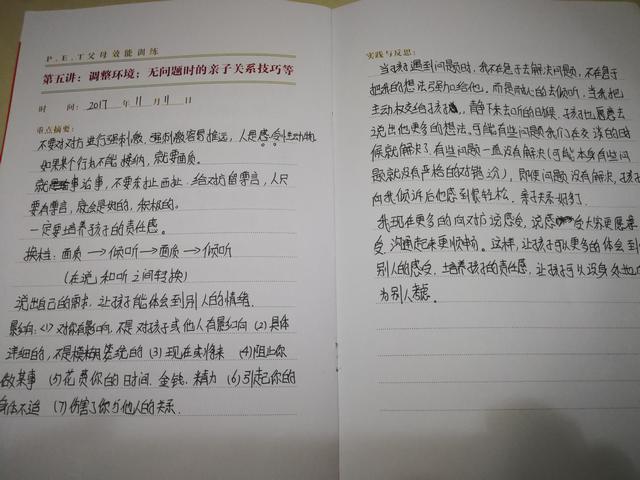 P.E.T父母效能训练
第五讲：调整环境；无问题时的亲子关系技巧等
时 间：2017 年 11 月 11 日
重点摘要：
不要对对方进行强刺激，强刺激容易推远，人是感受性动物
如果某个行为不能接纳，就要面质。
就事论事，不要东扯西扯，给对方留尊言，人只
要有尊言，就会是好的，积极的。
一定要培养孩子的责任感。
换档：面质→倾听→面质→倾听
（在说和听之间转换）
说出自己的需求，让孩子能体会到别人的情绪.
影响：(1) 对你有影响，不是对孩子或他人有影响 (2) 具体
详细的，不是模糊笼统的 (3) 现在或将来 (4) 阻止你
做某事 (5) 花费你的时间、金钱、精力 (6) 引起你的
身体不适 (7) 伤害了你与他人的关系.
实践与反思：
当孩子遇到问题时，我不急于去解决问题，不急于
把我的想法强加给他。而是耐心的去倾听，当我把
主动权交给孩子，静下来去听的时候，孩子也愿意去
说出他更多的想法，可能有些问题我们在交谈的时
候就解决了，有些问题一直没有解决（可能本身有些问
题就没有严格的对错之分），即使问题没有解决，孩子
向我倾诉后他感到很轻松，亲子关系好了.
我现在更多的向对方说感受，说感受大家更愿意
受，沟通起来更顺畅。这样，让孩子可以更多的体会到
别人的感受，培养孩子的责任感，让孩子可以设身处地
为别人考虑.